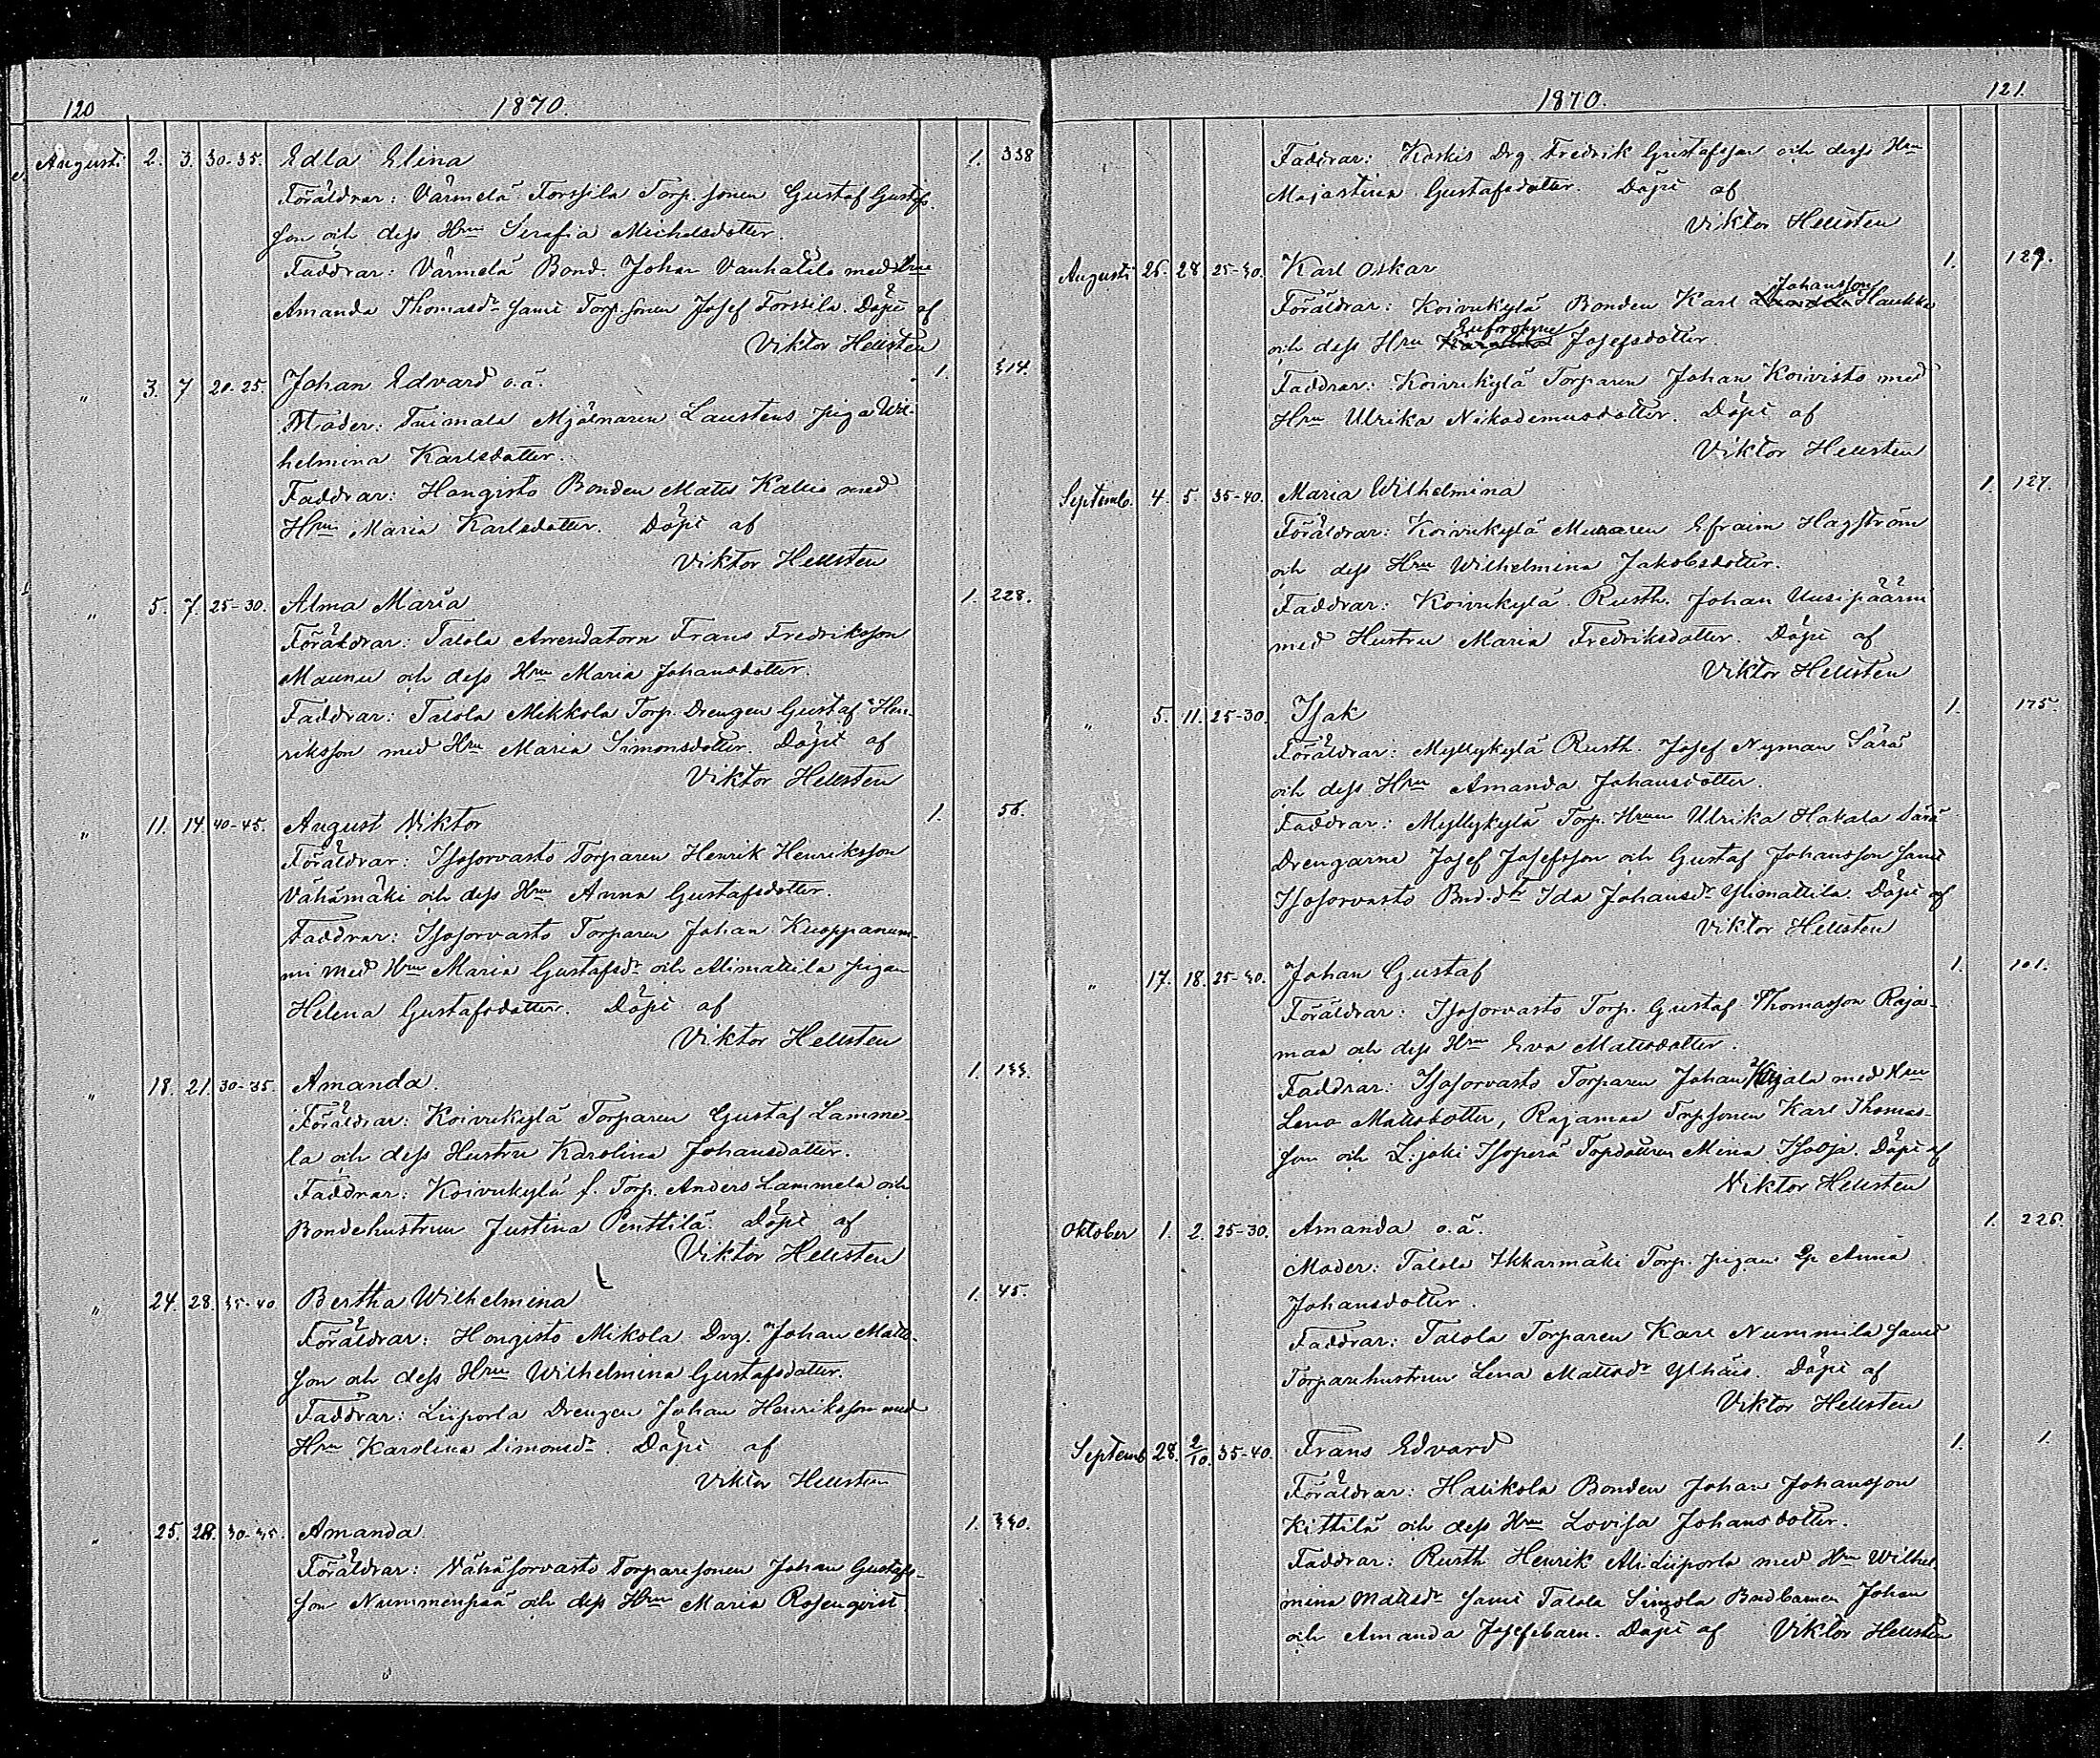 120
1870.
Augusti 2. 3. 30-35. Edla Elina 1. 338
Föräldrar: Värmelä Forssila Torp. sonen Gustaf Gustafs-
son och dess Hru Serafia Michelsdotter.
Faddrar: Värmelä Bond. Johan Vanhatalo med Hru
Amanda Thomasdr samt Torp. sonen Josef Forssila. Döpt af
Viktor Hellsten
" 3. 7 20-25. Johan Edvard o.ä. 1. 314.
Moder: Taimala Mjölnaren Laustens piga Wil-
helmina Karlsdotter.
Faddrar: Hongisto Bonden Matts Kallio med
Hru Maria Karlsdotter. Döpt af
Viktor Hellsten
" 5. 7. 25-30. Alma Maria 1. 228.
Föräldrar: Talola Arrendatorn Frans Fredriksson
Maunu och dess Hru Maria Johansdotter.
Faddrar: Talola Mikkola Torp. Drengen Gustaf Hen-
riksson med Hru Maria Simonsdotter. Döpt af
Viktor Hellsten
" 11. 14. 40-45. August Viktor 1. 56.
Föräldrar: Isosorvasto Torparen Henrik Henriksson
Vähämäki och dess Hru Anna Gustafsdotter.
Faddrar: Isosorvasto Torparen Johan Kuoppanum-
mi med Hru Maria Gustafsdr och Alimattila pigan
Helena Gustafsdotter. Döpt af
Viktor Hellsten
" 18. 21. 30-35. Amanda. 1. 133.
Föräldrar: Koivukylä Torparen Gustaf Lamme-
la och dess Hustru Karolina Johansdotter.
Faddrar: Koivukylä f. Torp. Anders Lammela och
Bondehustrun Justina Penttilä. Döpt af
Viktor Hellsten
" 24. 28. 35-40. Bertha Wilhelmina 1. 45.
Föräldrar: Hongisto Mikola Drg. Johan Matts-
son och dess Hru Wilhelmina Gustafsdotter.
Faddrar: Liiporla Drengen Johan Henriksson med
Hru Karolina Simonsdr. Döpt af
Viktor Hellsten
" 25. 28. 30-35. Amanda 1. 330.
Föräldrar: Vähäsorvasto Torparesonen Johan Gustafs-
son Nummenpää och dess Hru Maria Rosenqvist.
1870.
121.
Faddrar: Koskis Drg. Fredrik Gustafsson och dess Hru
Majastina Gustafsdotter. Döpt af
Viktor Hellsten
Augusti 26. 28. 25-30. Karl Oskar 1. 129.
Föräldrar: Koivukylä Bonden Karl Johansson Haukka
och dess Hru Eufrosyne Josefsdotter.
Faddrar: Koivukylä Torparen Johan Koivisto med
Hru Ulrika Nikodemusdotter. Döpt af
Viktor Hellsten
Septemb. 4. 5. 35-40. Maria Wilhelmina 1. 127.
Föräldrar: Koivukylä Muraren Efraim Hagström
och dess Hru Wilhelmina Jakobsdotter.
Faddrar: Koivukylä Rusth. Johan Uusipäärni
med Hustru Maria Fredriksdotter. Döpt af
Viktor Hellsten
" 5. 11. 25-30. Isak 1. 175.
Föräldrar: Myllykylä Rusth. Josef Nyman Särä
och dess Hru Amanda Johansdotter.
Faddrar: Myllykylä Torp. Hrun Ulrika Hakala Särä
Drengarne Josef Josefsson och Gustaf Johansson samt
Isosorvasto Bnd.dtr Ida Johansdr Ylimattila. Döpt af
Viktor Hellsten
" 17. 18. 25-30. Johan Gustaf 1. 101.
Föräldrar: Isosorvasto Torp. Gustaf Thomasson Raja-
maa och dess Hru Eva Mattsdotter.
Faddrar: Isosorvasto Torparen Johan med Hru
Lena Mattsdotter, Rajamaa Torpsonen Karl Thomas-
son och L:joki Isoperä Torpdottren Mina Isooja. Döpt af
Viktor Hellsten
Oktober 1. 2. 25-30. Amanda o.ä. 1. 226.
Moder: Talola Ikkarmäki Torp. pigan Anna
Johansdotter.
Faddrar: Talola Torparen Karl Nummila samt
Torparehustrun Lena Mattsdr Ylhäis. Döpt af
Viktor Hellsten
Septemb 28. 2/10. 35-40. Frans Edvard 1. 1.
Föräldrar: Halikola Bonden Johan Johansson
Kittilä och dess Hru Lovisa Johansdotter.
Faddrar: Rusth Henrik Ali Liiporla med Hru Wilhel-
mina Mattsdr samt Talola Simola Bndbarnen Johan
och Amanda Josefsbarn. Döpt af Viktor Hellsten